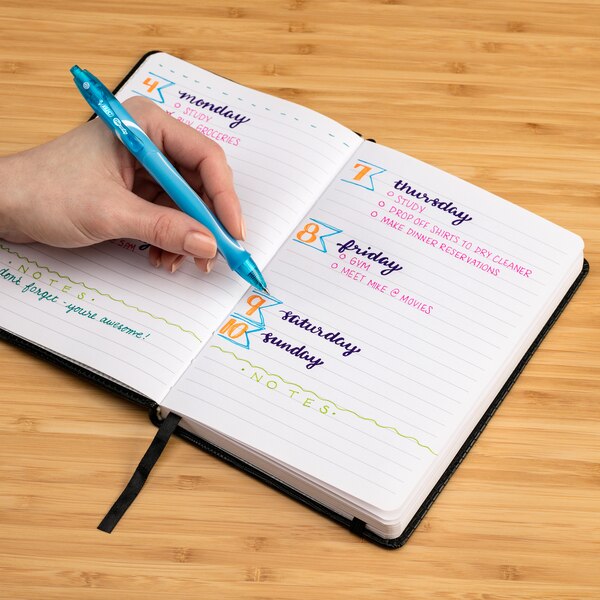 4 monday
STUDY
BUY GROCERIES
5PM
NOTES
don't forget - you're awesome!
7 thursday
STUDY
DROP OFF SHIRTS TO DRY CLEANER
MAKE DINNER RESERVATIONS
8 friday
GYM
MEET MIKE @ MOVIES
9 saturday
10 sunday
NOTES